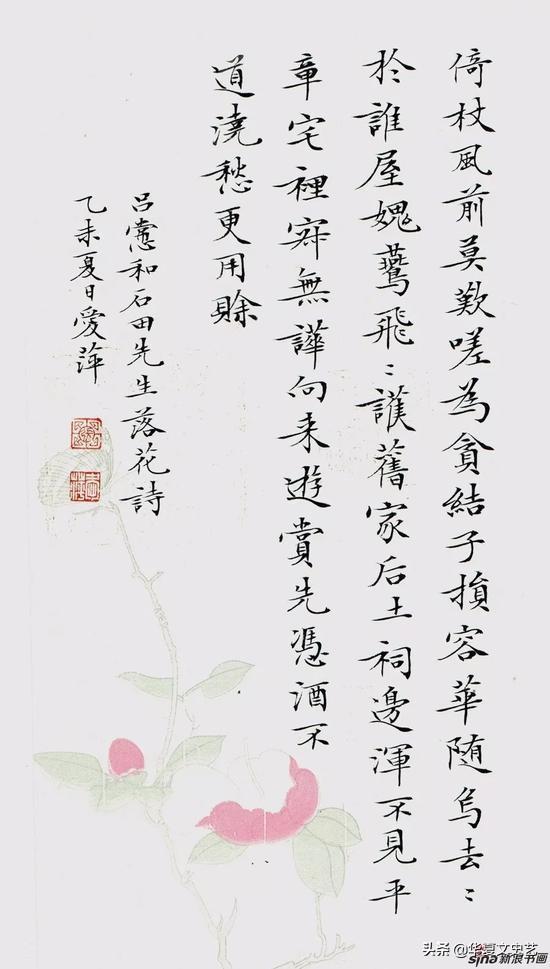 倚杖風前莫歎嗟為貪結子損容華随烏去〻
於誰屋媿鷰飛〻護舊家后土祠邊渾不見平
章宅裡寂無譁向来遊賞先憑酒不
道澆愁更用賖
吕㦂和石田先生落花詩
乙未夏日愛萍
头条 @华夏文史艺
sina新浪书画